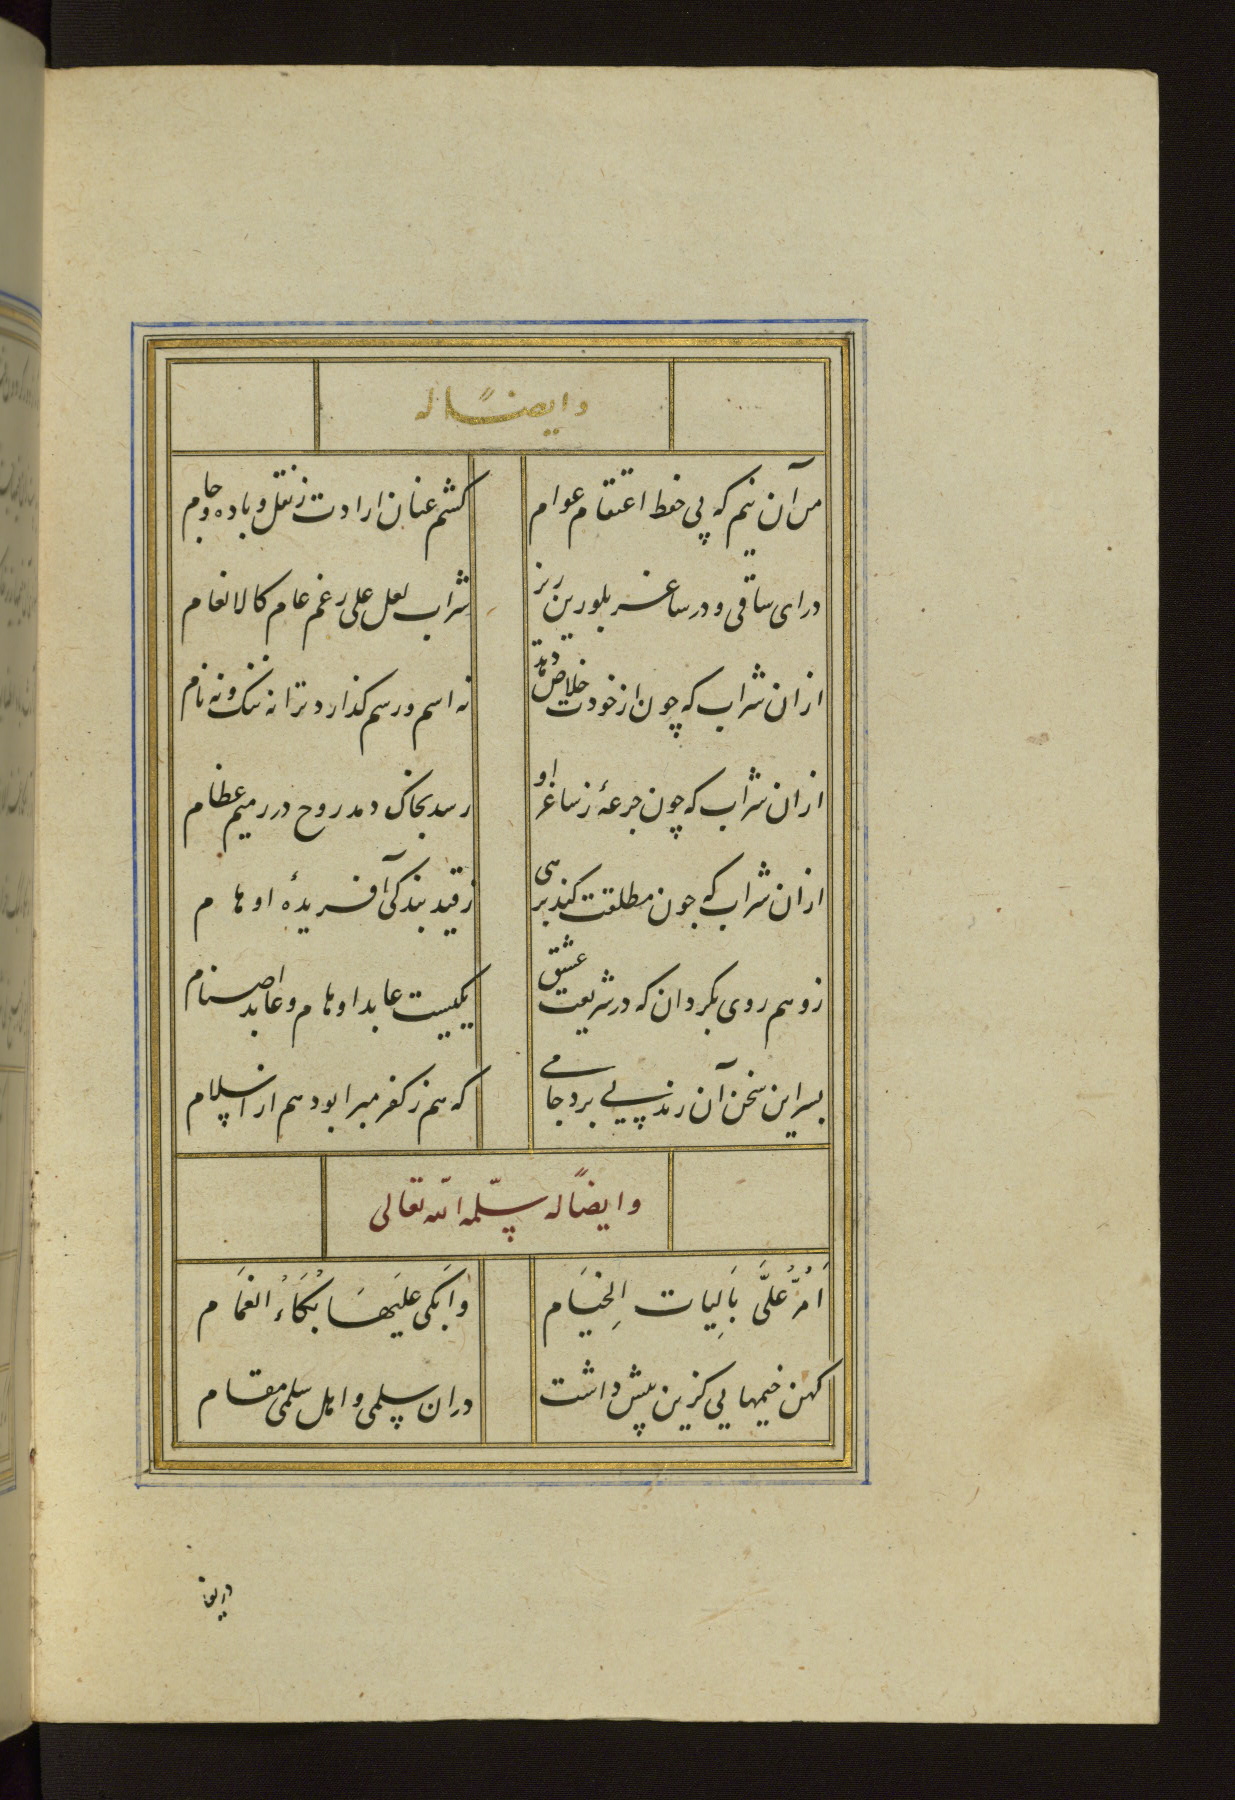 وایضاً له
من آن نیم که پی حفظ اعتقام عوام
کشم عنان ارادت ز نقل و باده و جام
درای ساقی و در ساغر بلورین ریز
شراب لعل علی رغم عام کالانعام
ازان شراب که چون از خودت خلاص دهد
نه اسم و رسم کذارد ترا نه ننک و نه نام
ازان شراب که چون جرعهٔ ز ساغر او
رسد بخاک دمد روح در رمیم عظام
ازان شراب که چون مطلقت کند برهی
ز قید بندکی آفریدهٔ اوهام
ز وهم روی بکردان که در شریعت عشق
یکیست عابد اوهام و عابد اصنام
بسر این سخن آن رند پی برد جامی
که هم ز کفر مبرا بود هم از اسلام
وایضاً له سلّمه الله تعالی
اَمُرُّ عُلَّی بَالِیات الِخیَام
وَاَبکی عَلَیهَا بُکَاءُ الغَمَام
کهن خیمهایی کزین پیش داشت
دران سلمی و اهل سلمی مقام